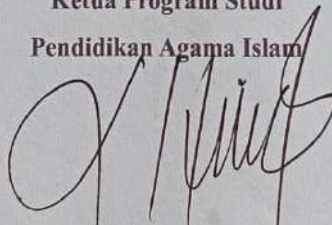 Ketua Program Studi
Pendidikan Agama Islam